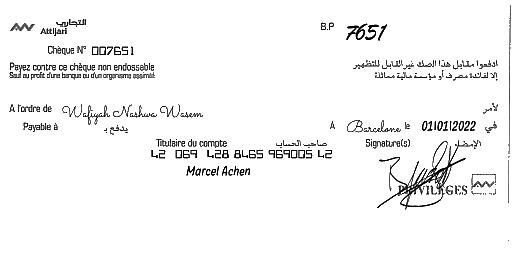 التجاري
Attijari
Chèque N° 007651
B.P 7651
Payez contre ce chèque non endossable
Seul au profit d'une banque ou d'un organisme assimilé
ادفعوا مقابل هذا الصك غير القابل للتظهير
إلا لفائدة مصرف أو مؤسسة مالية مماثلة
A l'ordre de Wafiyah Nashwa Wasem لأمر
Payable à يدفع بـ
A Barcelone le 01/01/2022 في
Titulaire du compte صاحب الحساب
Signature(s) الإمضاء
42 069 428 8465 969005 42
Marcel Achen
PRIVILEGES